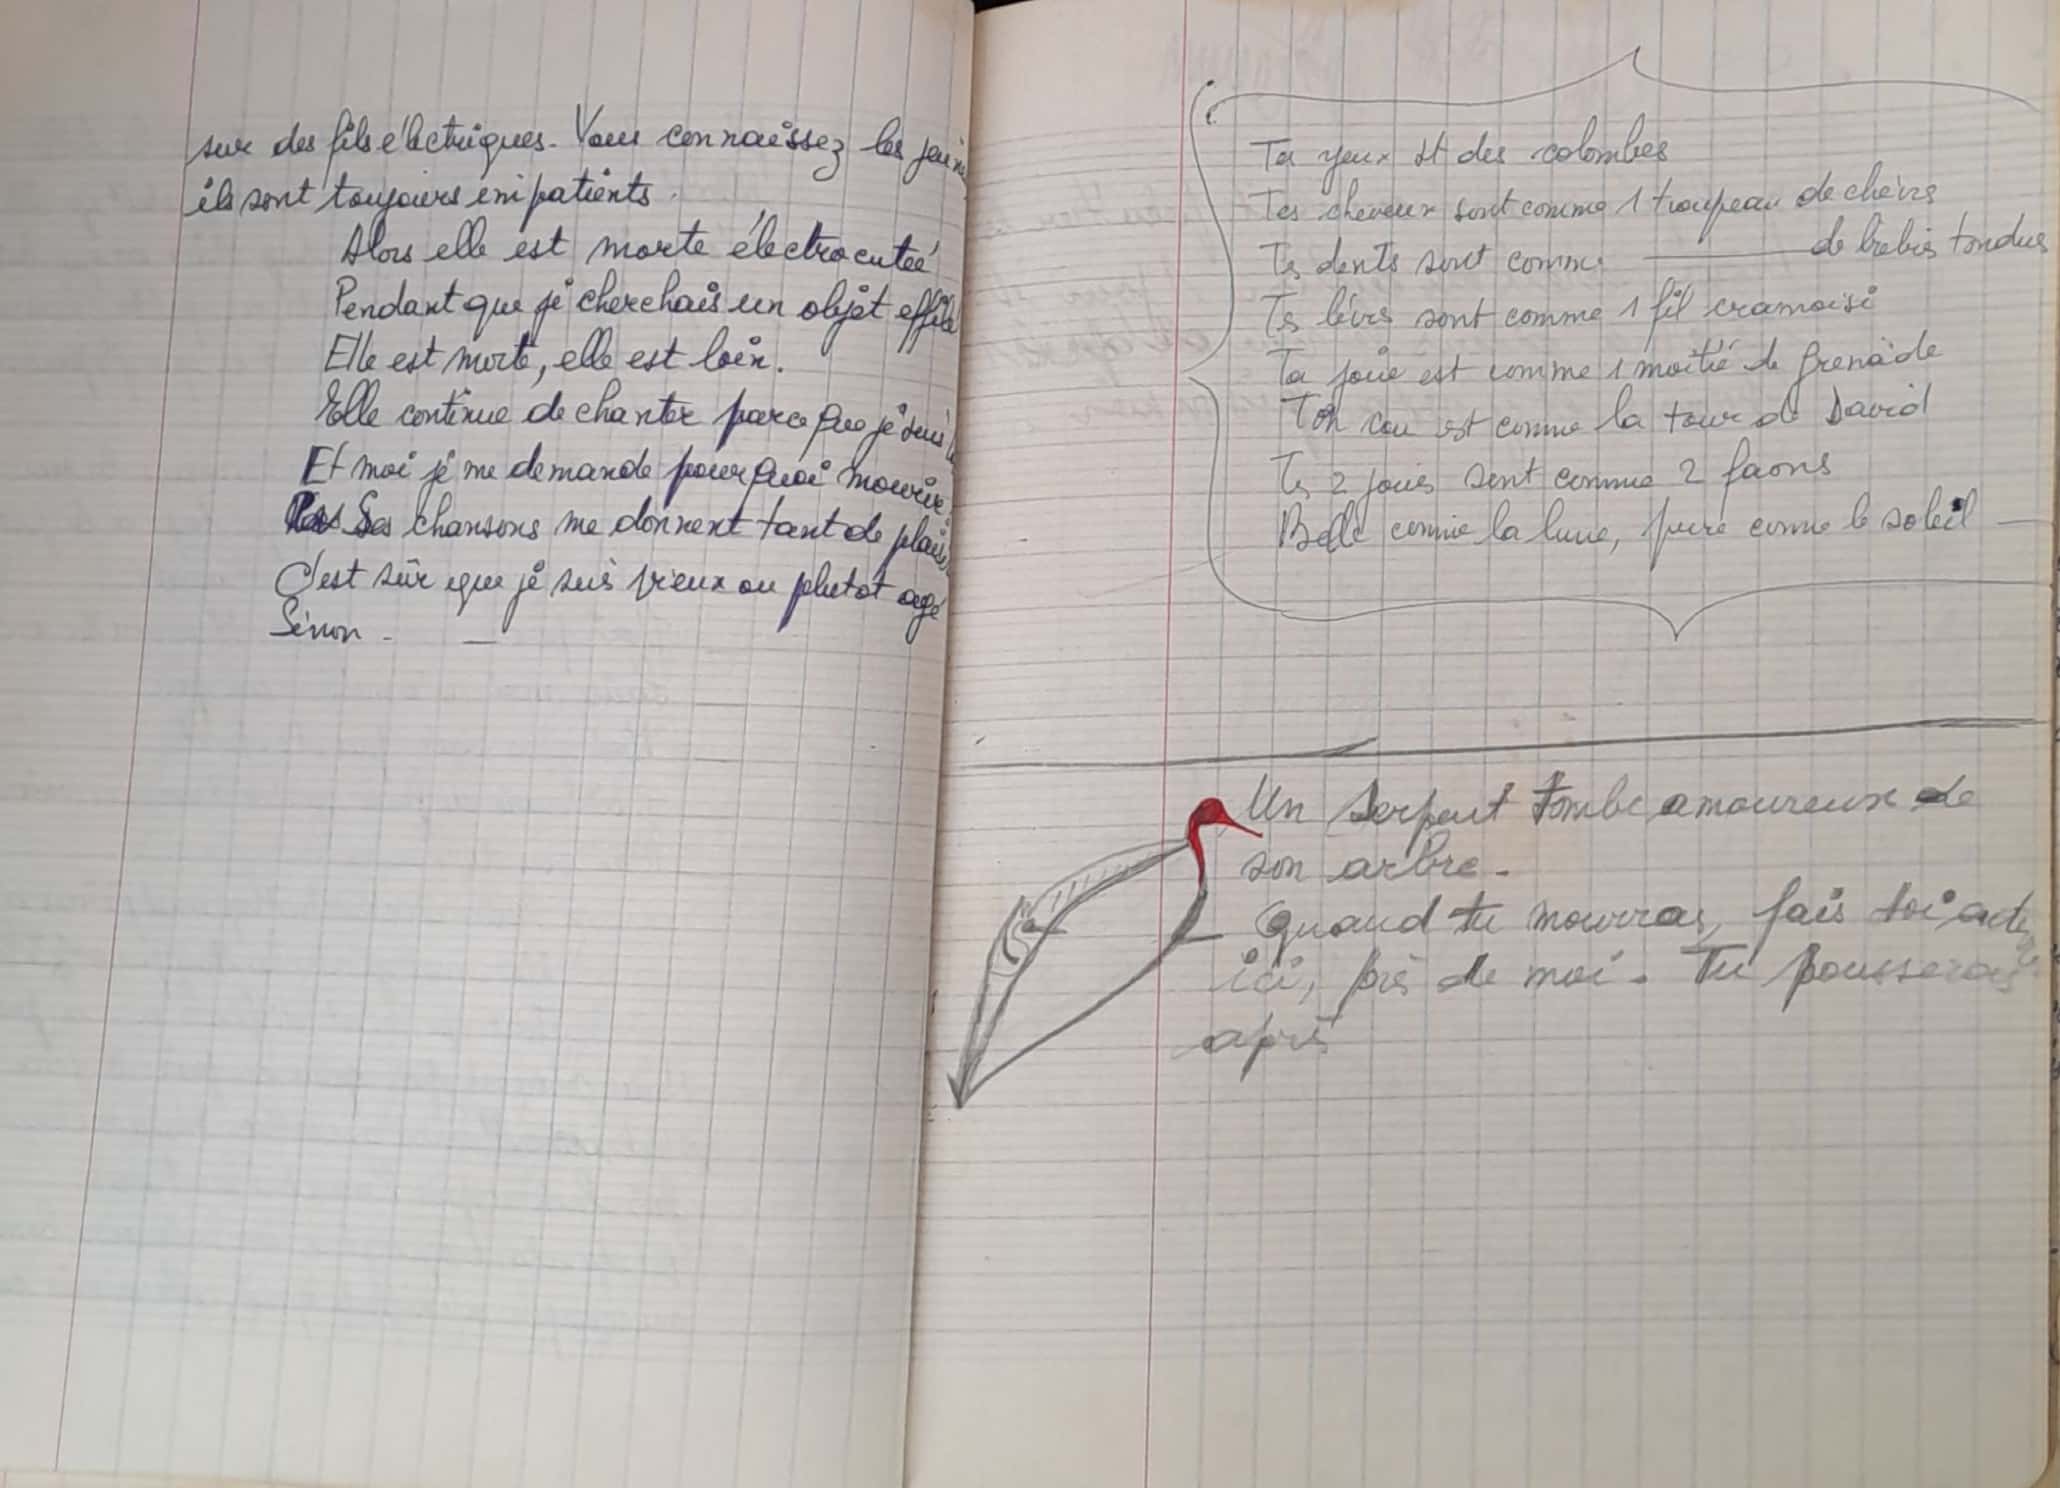 sur des fils électriques. Vous connaissez les jeunes
ils sont toujours impatients.
Alors elle est morte électrocutée
Pendant que je cherchais un objet effilé
Elle est morte, elle est loin.
Elle continue de chanter parce que je suis
Et moi je me demande pourquoi mourir
Ses chansons me donnent tant de plaisir
C'est sûr que je suis vieux ou plutot agé
Sinon.
Ta yeux st des colombes
Tes cheveux sont comme 1 troupeau de chèvrs
Ts dents sont comme ——— de brebis tondues
Ts lèvrs sont comme 1 fil cramoisi
Ta joue est comme 1 moitié de grenade
Ton cou est comme la tour de David
Ts 2 joues sont comme 2 faons
Belle comme la lune, pure comme le soleil —
Un serpent tombe amoureux de
son arbre.
Quand tu mourras, fais toi
ici, près de moi. Tu pousseras
après